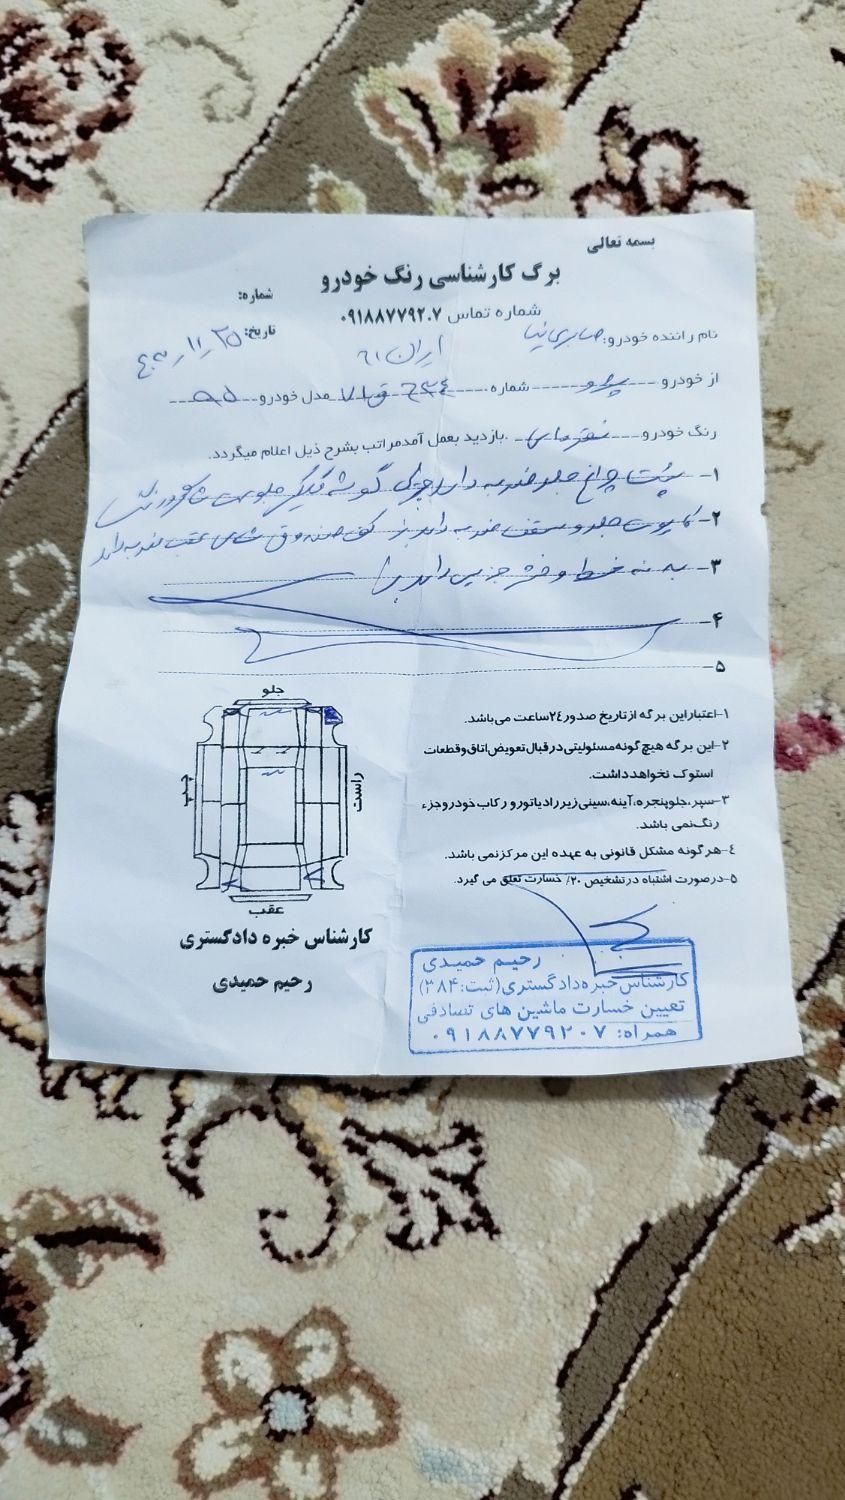 بسمه تعالی
برگ کارشناسی رنگ خودرو
شماره:
شماره تماس ۰۹۱۸۸۷۷۹۲۰۷
تاریخ: ۴۰۳/۱۱/۲۵
نام راننده خودرو: صابری نیا
ایران ۶۱
از خودرو شماره ۶۳۴ ق ۷۱ مدل خودرو ۹۵
رنگ خودرو نقره ای بازدید بعمل آمد مراتب بشرح ذیل اعلام میگردد.
۱- پشت چراغ جلو ضربه دارد گوشه گلگیر جلو رنگ
۲- کاپوت جلو و سقف ضربه دارد کف صندوق عقب ضربه دارد
۳- بدنه خط و خش جزیی دارد
۴-
۵-
جلو
چپ
راست
عقب
۱-اعتبار این برگه از تاریخ صدور ۲۴ ساعت می باشد.
۲-این برگه هیچ گونه مسئولیتی در قبال تعویض اتاق و قطعات
استوک نخواهد داشت.
۳-سپر، جلو پنجره، آینه، سینی زیر رادیاتور و رکاب خودرو جزء
رنگ نمی باشد.
۴-هر گونه مشکل قانونی به عهده این مرکز نمی باشد.
۵-در صورت اشتباه در تشخیص ۲۰٪ خسارت تعلق می گیرد.
کارشناس خبره دادگستری
رحیم حمیدی
رحیم حمیدی
کارشناس خبره دادگستری (ثبت: ۳۸۴)
تعیین خسارت ماشین های تصادفی
همراه: ۰۹۱۸۸۷۷۹۲۰۷